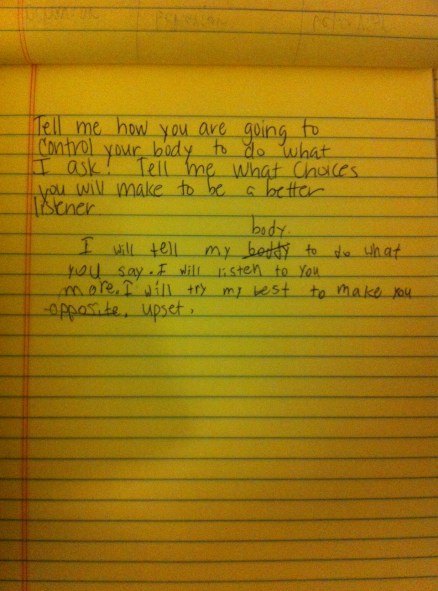 Tell me how you are going to
control your body to do what
I ask! Tell me what choices
you will make to be a better
listener
body.
I will tell my boddy to do what
you say. I will listen to you
more. I will try my best to make you
opposite. upset.